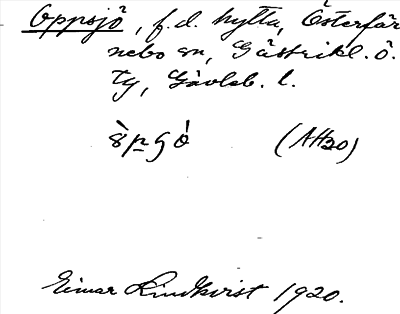 Oppsjö, f.d. hytta, Österfär
nebo sn, Gästrikl. ö.
tg, Gävleb. l.
(AH20)
Einar Lindkvist 1920.